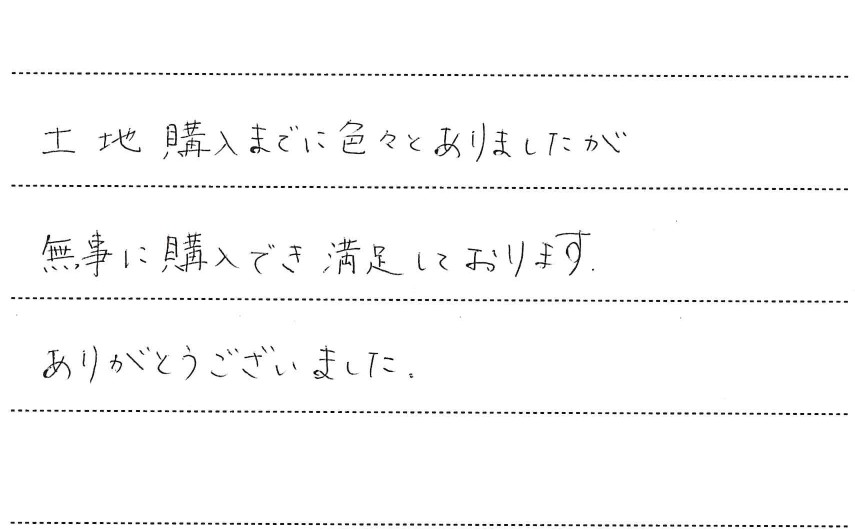 土地購入までに色々とありましたが
無事に購入でき満足しております.
ありがとうございました。